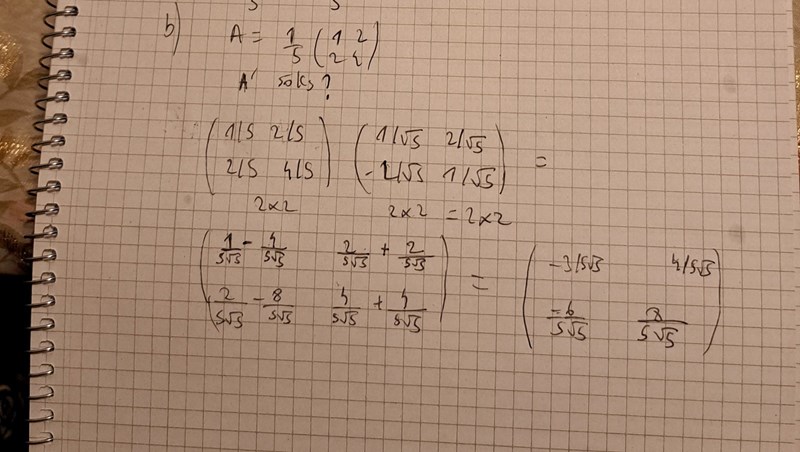 b) A = 1/5 (1 2
2 4)
A' söks?
(1/5 2/5 (1/√5 2/√5 =
2/5 4/5) -2/√5 1/√5)
2×2 2×2 = 2×2
(1/5√5 - 4/5√5 2/5√5 + 2/5√5 = (-3/5√5 4/5√5
2/5√5 - 8/5√5 4/5√5 + 4/5√5) -6/5√5 8/5√5)